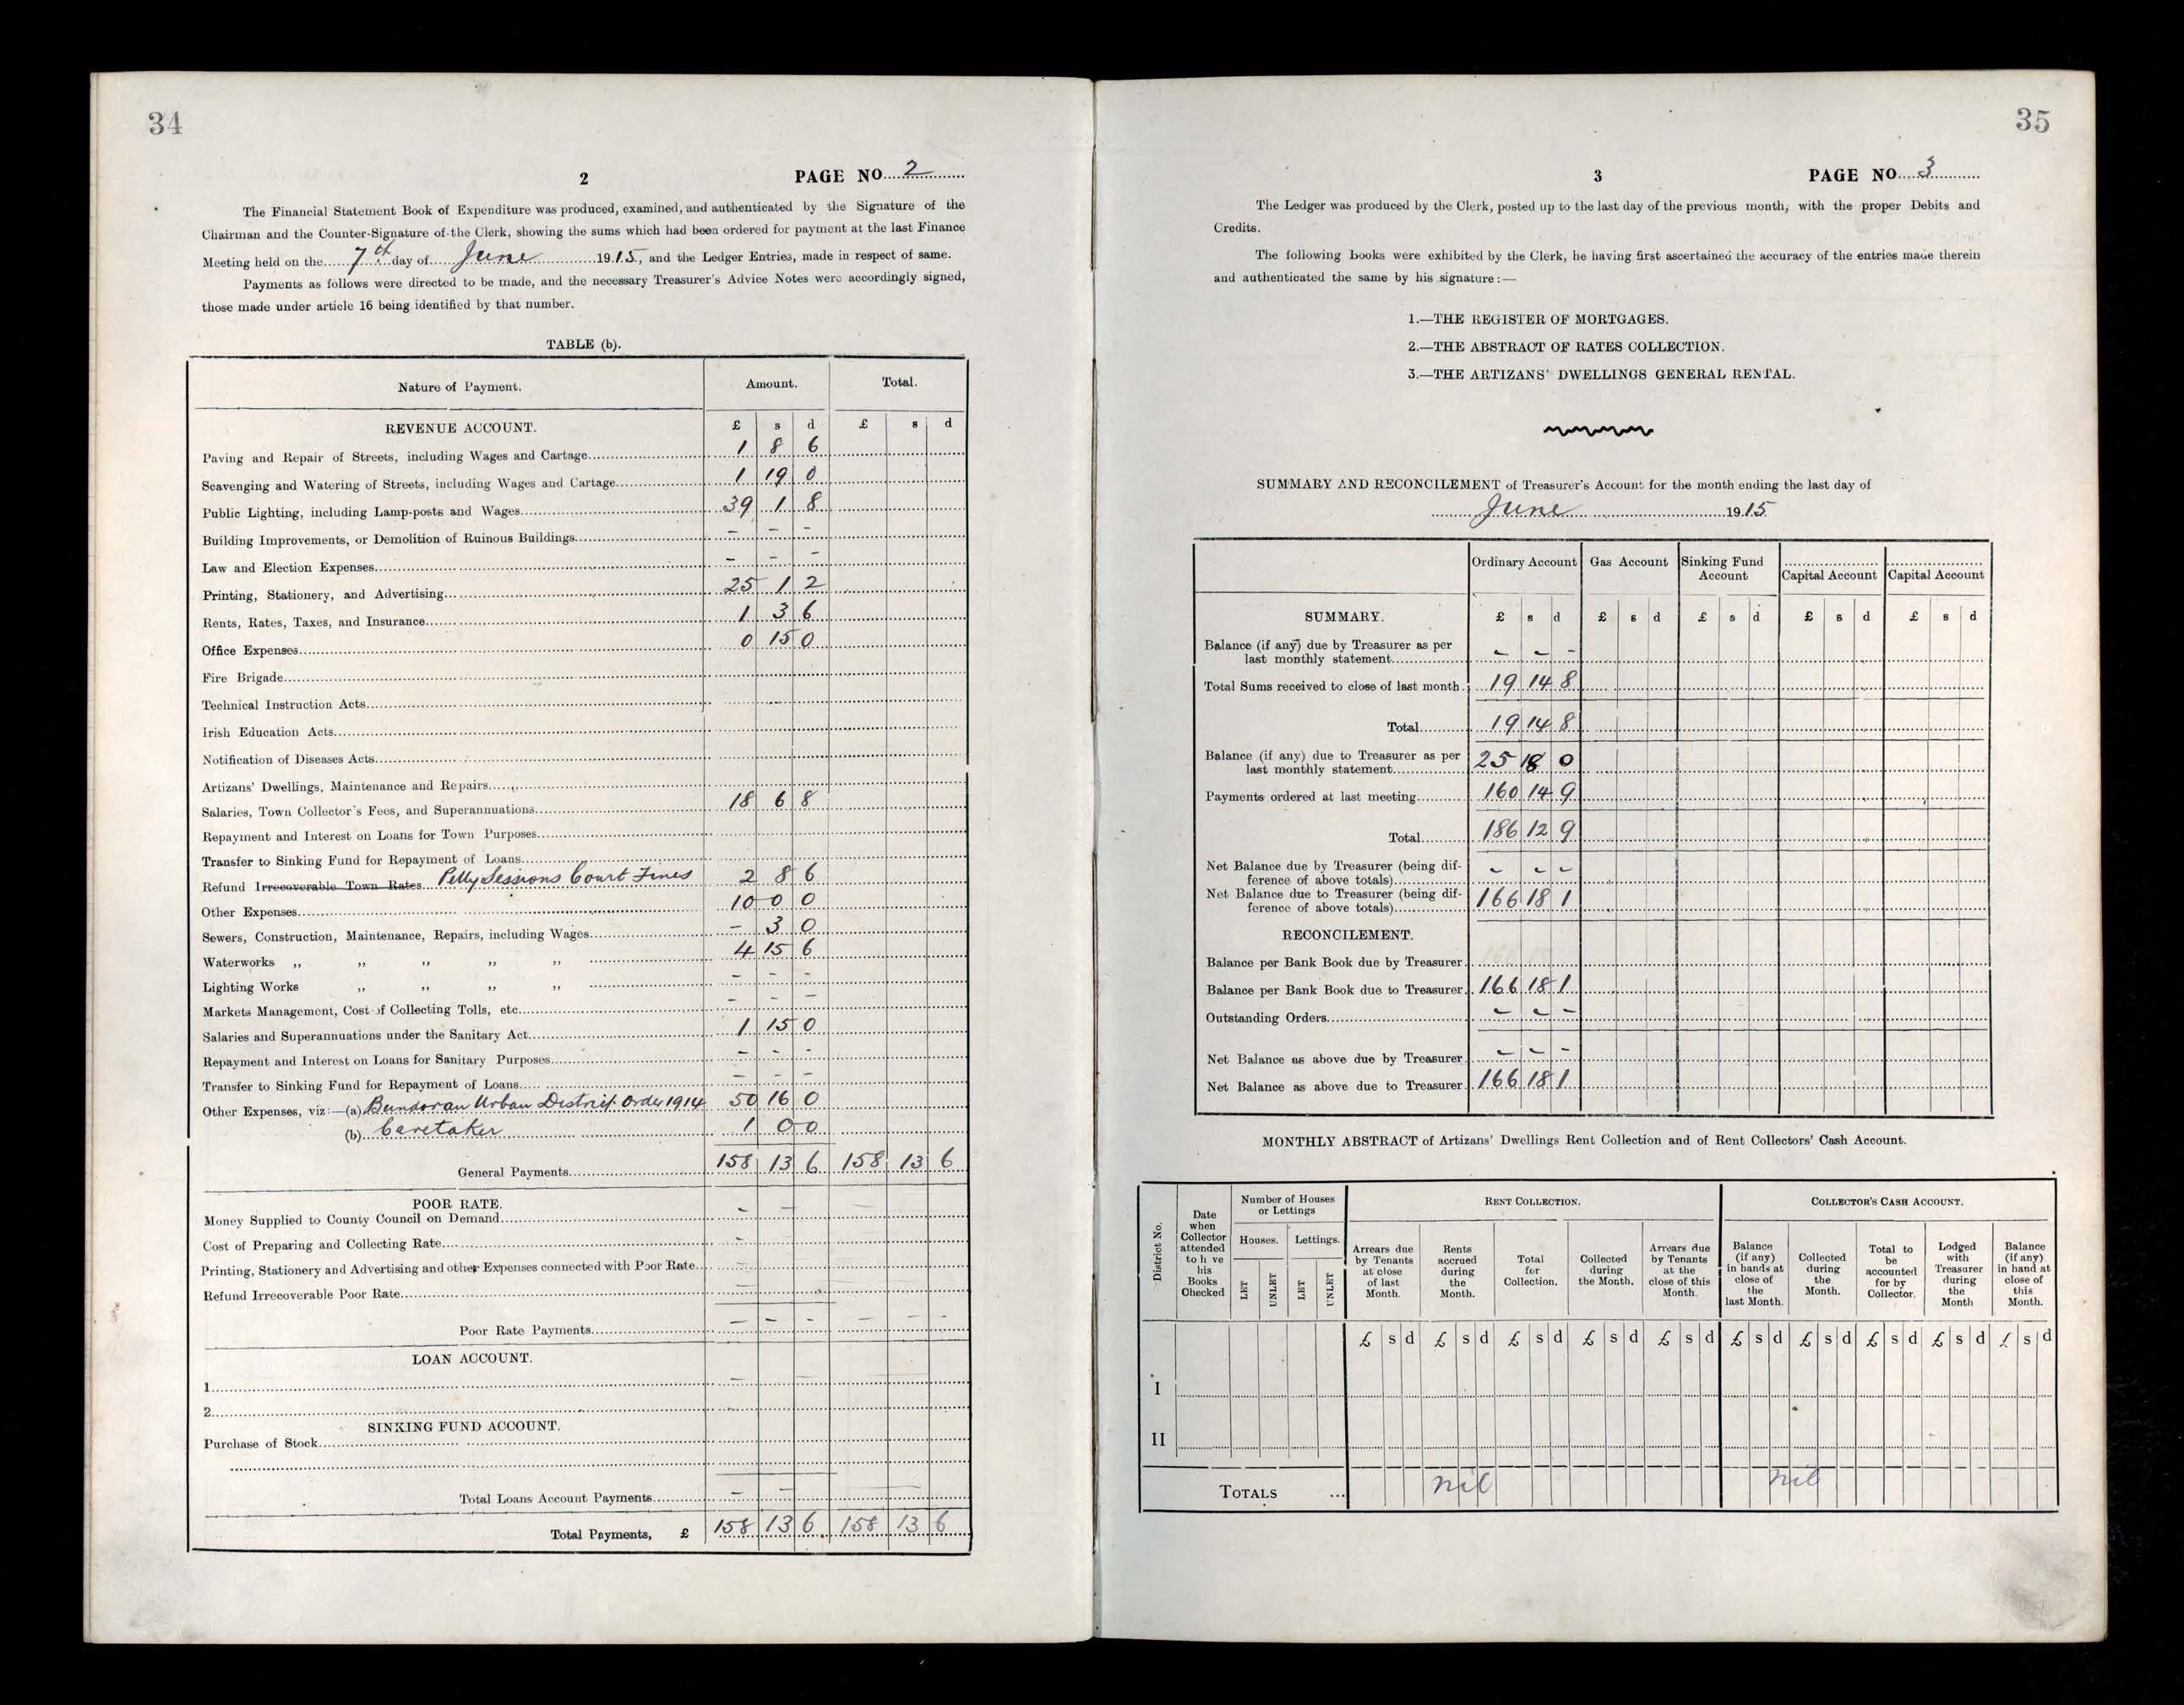 34
2 PAGE NO. 2
The Financial Statement Book of Expenditure was produced, examined, and authenticated by the Signature of the
Chairman and the Counter-Signature of the Clerk, showing the sums which had been ordered for payment at the last Finance
Meeting held on the 7th day of June 1915, and the Ledger Entries, made in respect of same.
Payments as follows were directed to be made, and the necessary Treasurer's Advice Notes were accordingly signed,
those made under article 16 being identified by that number.
TABLE (b).
Nature of Payment. Amount. Total.
REVENUE ACCOUNT. £ s d £ s d
Paving and Repair of Streets, including Wages and Cartage 1 8 6
Scavenging and Watering of Streets, including Wages and Cartage 1 19 0
Public Lighting, including Lamp-posts and Wages 39 1 8
Building Improvements, or Demolition of Ruinous Buildings - - -
Law and Election Expenses - - -
Printing, Stationery, and Advertising 25 1 2
Rents, Rates, Taxes, and Insurance 1 3 6
Office Expenses 0 15 0
Fire Brigade
Technical Instruction Acts
Irish Education Acts
Notification of Diseases Acts
Artizans' Dwellings, Maintenance and Repairs
Salaries, Town Collector's Fees, and Superannuations 18 6 8
Repayment and Interest on Loans for Town Purposes
Transfer to Sinking Fund for Repayment of Loans
Refund Irrecoverable Town Rates Petty Sessions Court Fines 2 8 6
Other Expenses 10 0 0
Sewers, Construction, Maintenance, Repairs, including Wages - 3 0
Waterworks ,, ,, ,, ,, ,, 4 15 6
Lighting Works ,, ,, ,, ,, - - -
Markets Management, Cost of Collecting Tolls, etc - - -
Salaries and Superannuations under the Sanitary Act 1 15 0
Repayment and Interest on Loans for Sanitary Purposes - - -
Transfer to Sinking Fund for Repayment of Loans - - -
Other Expenses, viz:—(a) Bundoran Urban District Order 1914 50 16 0
(b) Caretaker 1 0 0
General Payments 158 13 6 158 13 6
POOR RATE.
Money Supplied to County Council on Demand - -
Cost of Preparing and Collecting Rate -
Printing, Stationery and Advertising and other Expenses connected with Poor Rate
Refund Irrecoverable Poor Rate
Poor Rate Payments - - - - - -
LOAN ACCOUNT.
1
2
SINKING FUND ACCOUNT.
Purchase of Stock
Total Loans Account Payments - -
Total Payments, £ 158 13 6 158 13 6
35
3 PAGE NO. 3
The Ledger was produced by the Clerk, posted up to the last day of the previous month, with the proper Debits and
Credits.
The following books were exhibited by the Clerk, he having first ascertained the accuracy of the entries made therein
and authenticated the same by his signature:—
1.—THE REGISTER OF MORTGAGES.
2.—THE ABSTRACT OF RATES COLLECTION.
3.—THE ARTIZANS' DWELLINGS GENERAL RENTAL.
SUMMARY AND RECONCILEMENT of Treasurer's Account for the month ending the last day of
June 1915
Ordinary Account Gas Account Sinking Fund Account Capital Account Capital Account
SUMMARY. £ s d £ s d £ s d £ s d £ s d
Balance (if any) due by Treasurer as per
last monthly statement - - -
Total Sums received to close of last month 19 14 8
Total 19 14 8
Balance (if any) due to Treasurer as per
last monthly statement 25 18 0
Payments ordered at last meeting 160 14 9
Total 186 12 9
Net Balance due by Treasurer (being dif-
ference of above totals) - - -
Net Balance due to Treasurer (being dif-
ference of above totals) 166 18 1
RECONCILEMENT.
Balance per Bank Book due by Treasurer
Balance per Bank Book due to Treasurer 166 18 1
Outstanding Orders - - -
Net Balance as above due by Treasurer - - -
Net Balance as above due to Treasurer 166 18 1
MONTHLY ABSTRACT of Artizans' Dwellings Rent Collection and of Rent Collectors' Cash Account.
District No.
Date when Collector attended to h ve his Books Checked
Number of Houses or Lettings
Houses. Lettings.
LET UNLET LET UNLET
RENT COLLECTION.
Arrears due by Tenants at close of last Month.
Rents accrued during the Month.
Total for Collection.
Collected during the Month.
Arrears due by Tenants at the close of this Month.
COLLECTOR'S CASH ACCOUNT.
Balance (if any) in hands at close of the last Month.
Collected during the Month.
Total to be accounted for by Collector.
Lodged with Treasurer during the Month
Balance (if any) in hand at close of this Month.
£ s d £ s d £ s d £ s d £ s d £ s d £ s d £ s d £ s d £ s d
I
II
TOTALS ... nil nil